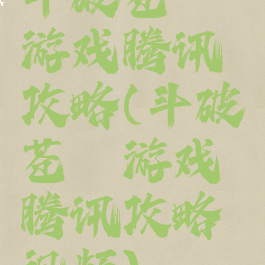 斗破苍
游戏腾讯
攻略(斗破
苍 游戏
腾讯攻略
视频)